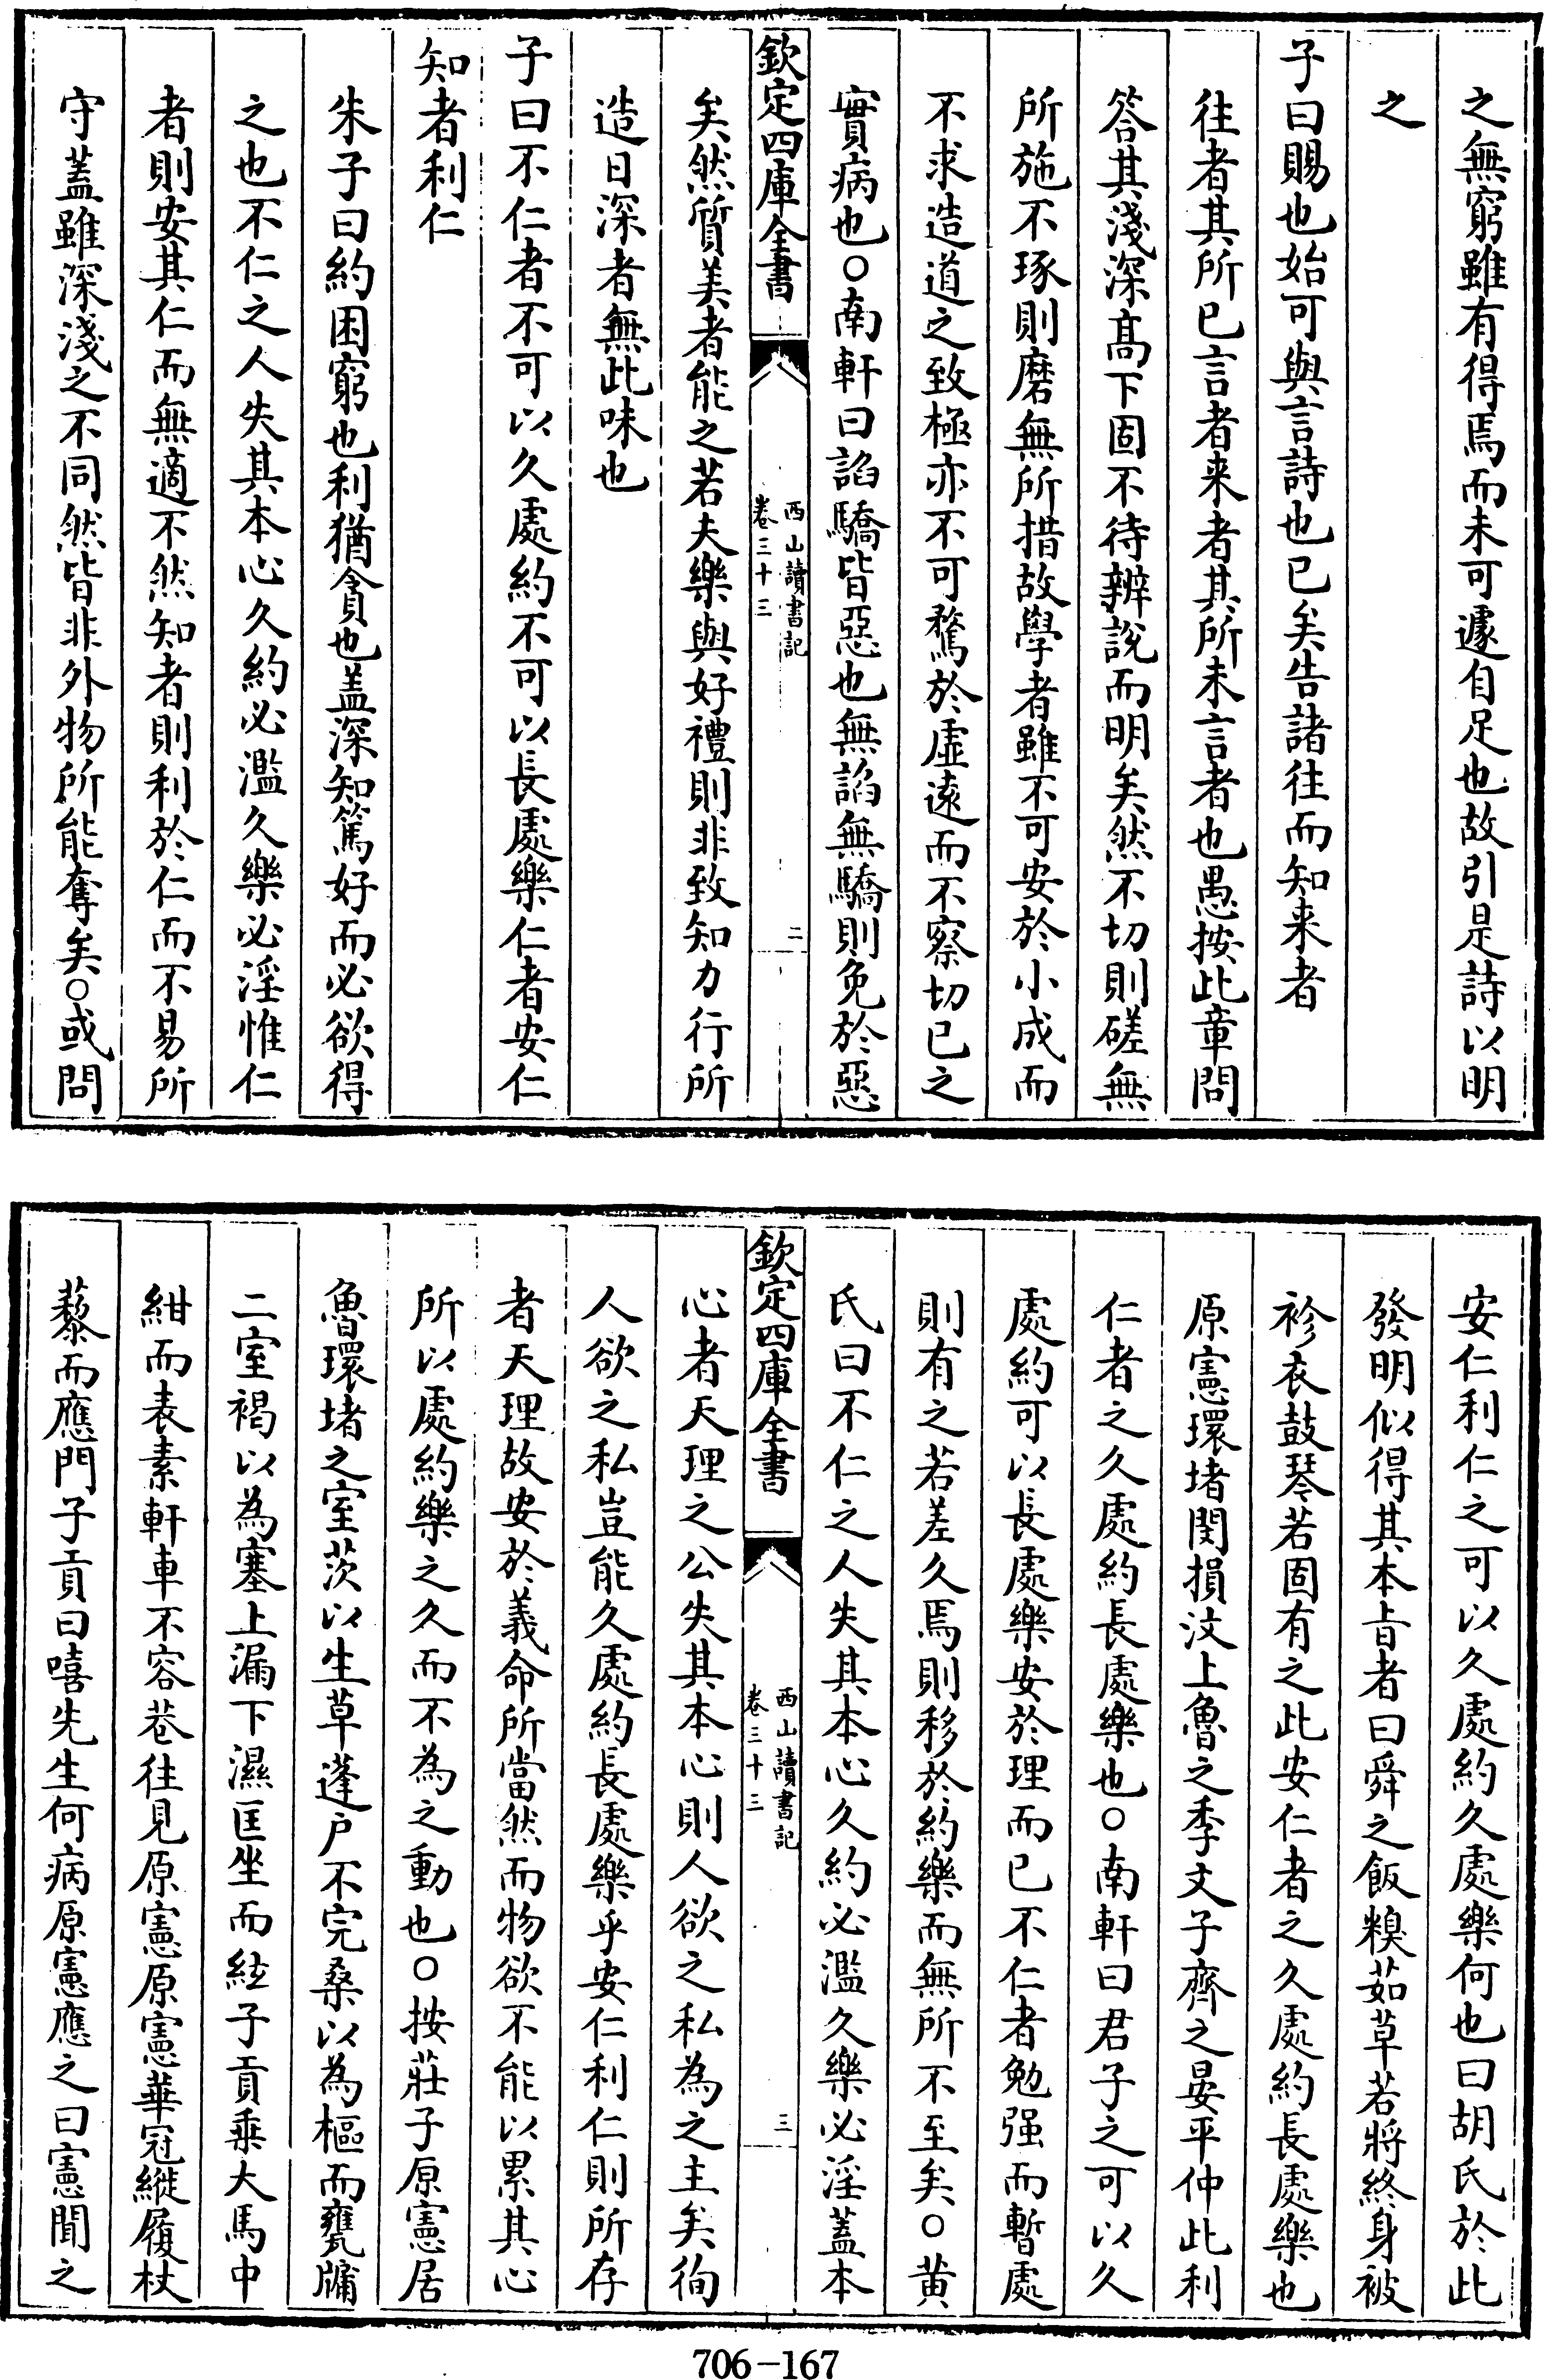 之無窮雖有得焉而未可遽自足也故引是詩以明
之
子曰賜也始可與言詩也已矣告諸往而知来者
往者其所已言者来者其所未言者也愚按此章問
答其淺深髙下固不待辨說而明矣然不切則磋無
所施不琢則磨無所措故學者雖不可安於小成而
不求造道之致極亦不可騖於虚逺而不察切已之
實病也○南軒曰諂驕皆惡也無諂無驕則免於惡
欽定四庫全書
西山讀書記
卷三十三
二
矣然質美者能之若夫樂與好禮則非致知力行所
造日深者無此味也
子曰不仁者不可以久處約不可以長處樂仁者安仁
知者利仁
朱子曰約困窮也利猶貪也盖深知篤好而必欲得
之也不仁之人失其本心久約必濫久樂必淫惟仁
者則安其仁而無適不然知者則利於仁而不易所
守蓋雖深淺之不同然皆非外物所能奪矣○或問
安仁利仁之可以久處約久處樂何也曰胡氏於此
發明似得其本㫖者曰舜之飯糗茹草若將終身被
袗衣鼓琴若固有之此安仁者之久處約長處樂也
原憲環堵閔損汶上魯之季文子齊之晏平仲此利
仁者之久處約長處樂也○南軒曰君子之可以久
處約可以長處樂安於理而已不仁者勉强而暫處
則有之若差久焉則移於約樂而無所不至矣○黄
氏曰不仁之人失其本心久約必濫久樂必淫蓋本
欽定四庫全書
西山讀書記
卷三十三
三
心者天理之公失其本心則人欲之私為之主矣徇
人欲之私豈能久處約長處樂乎安仁利仁則所存
者天理故安於義命所當然而物欲不能以累其心
所以處約樂之久而不為之動也○按莊子原憲居
魯環堵之室茨以生草蓬户不完桑以為樞而甕牖
二室褐以為塞上漏下濕匡坐而絃子貢乘大馬中
紺而表素軒車不容巷往見原憲原憲華冠縰履杖
藜而應門子貢曰嘻先生何病原憲應之曰憲聞之
706-167